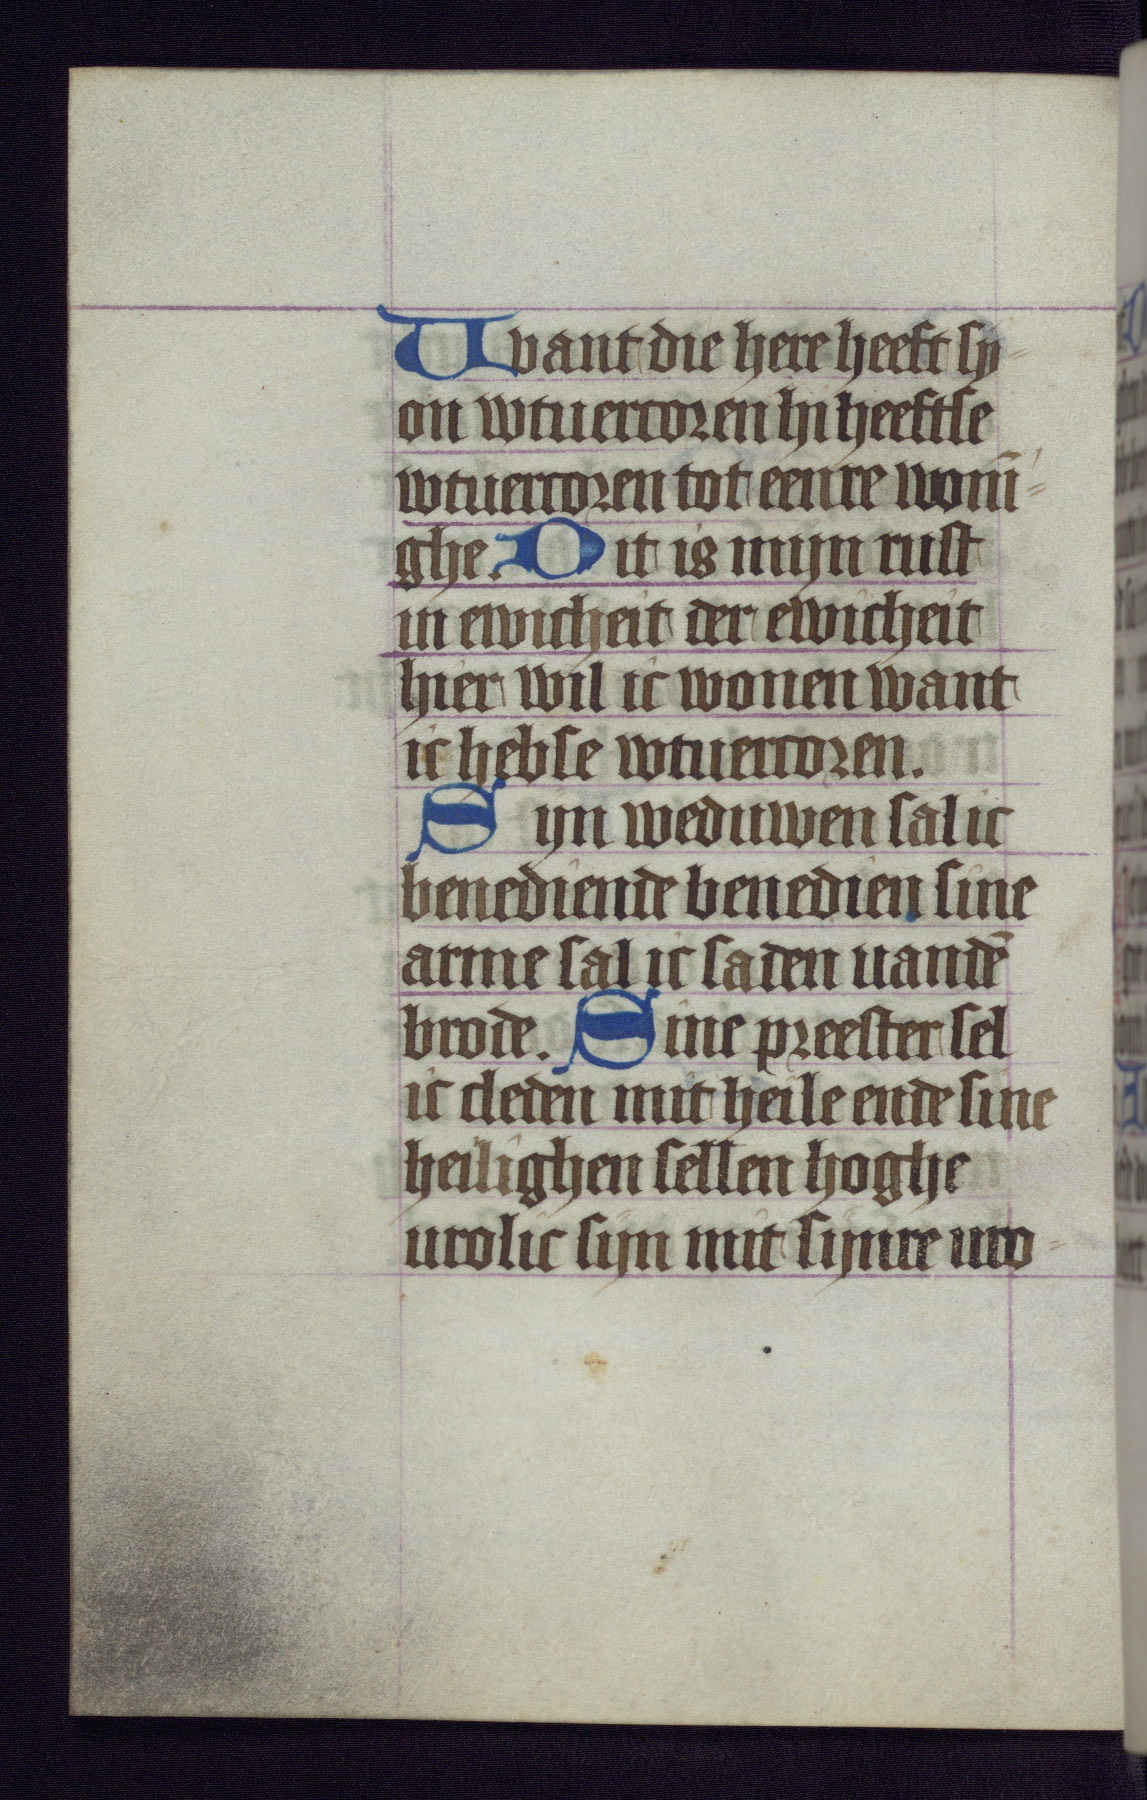 Uvant die here heeft sy-
on wtuercoren hi heeftse
wtuercoren tot eenre wonī-
ghe. Dit is mijn rust
in ewicheit der ewicheit
hier wil ic wonen want
ic hebse wtuercoren.
Sijn weduwen sal ic
benediende benedien sine
arme sal ic saden uandē
brode. Sine preester sel
ic cleden mit heile ende sine
heilighen sellen hoghe
urolic sijn mit sijnre uro-